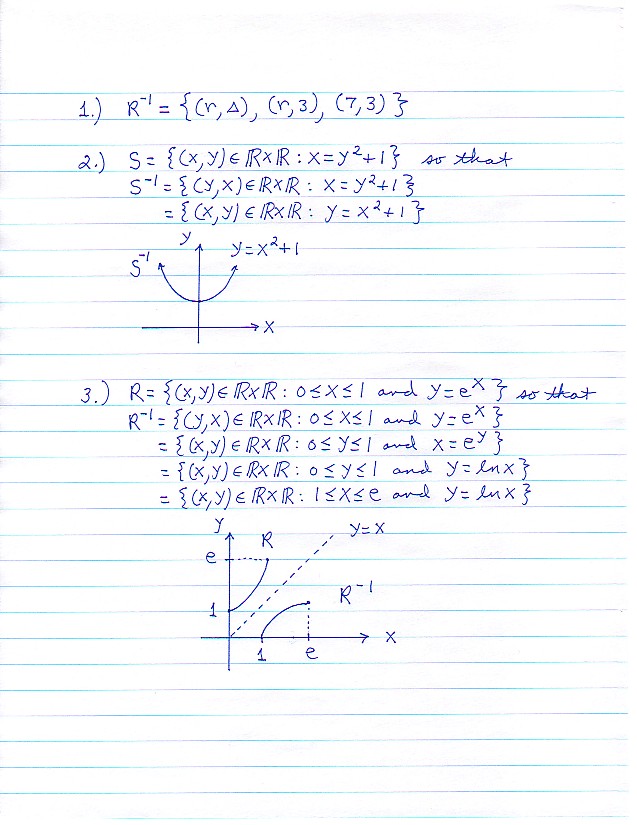 1.) R⁻¹ = {(r, Δ), (r, 3), (7, 3)}
2.) S = {(x, y) ∈ ℝ×ℝ : x = y² + 1} so that
S⁻¹ = {(y, x) ∈ ℝ×ℝ : x = y² + 1}
= {(x, y) ∈ ℝ×ℝ : y = x² + 1}
y y = x² + 1
S⁻¹
x
3.) R = {(x, y) ∈ ℝ×ℝ : 0 ≤ x ≤ 1 and y = eˣ} so that
R⁻¹ = {(y, x) ∈ ℝ×ℝ : 0 ≤ x ≤ 1 and y = eˣ}
= {(x, y) ∈ ℝ×ℝ : 0 ≤ y ≤ 1 and x = eʸ}
= {(x, y) ∈ ℝ×ℝ : 0 ≤ y ≤ 1 and y = ln x}
= {(x, y) ∈ ℝ×ℝ : 1 ≤ x ≤ e and y = ln x}
y R y = x
e
R⁻¹
1
x
1 e